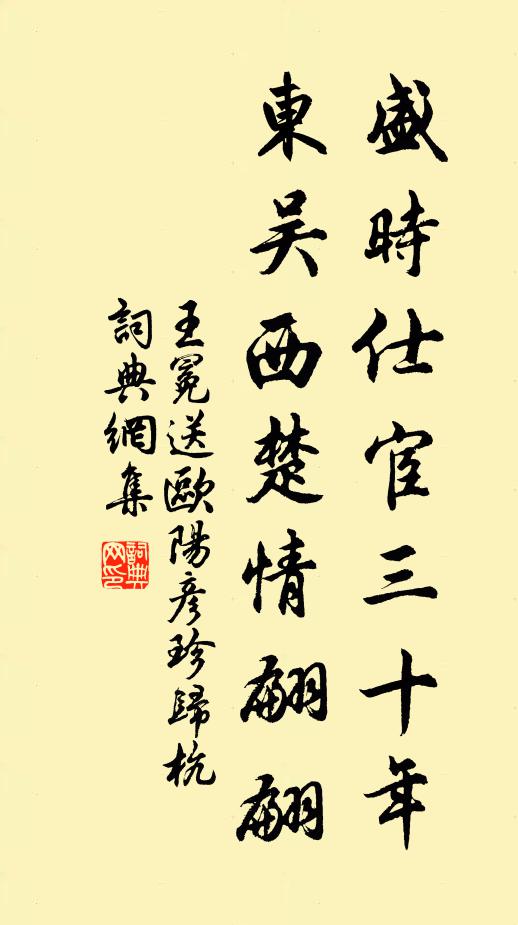 盛時仕宦三十年
東吴西楚情翩翩
王冕送歐陽彦珍歸杭
詞典網集
詞典网印